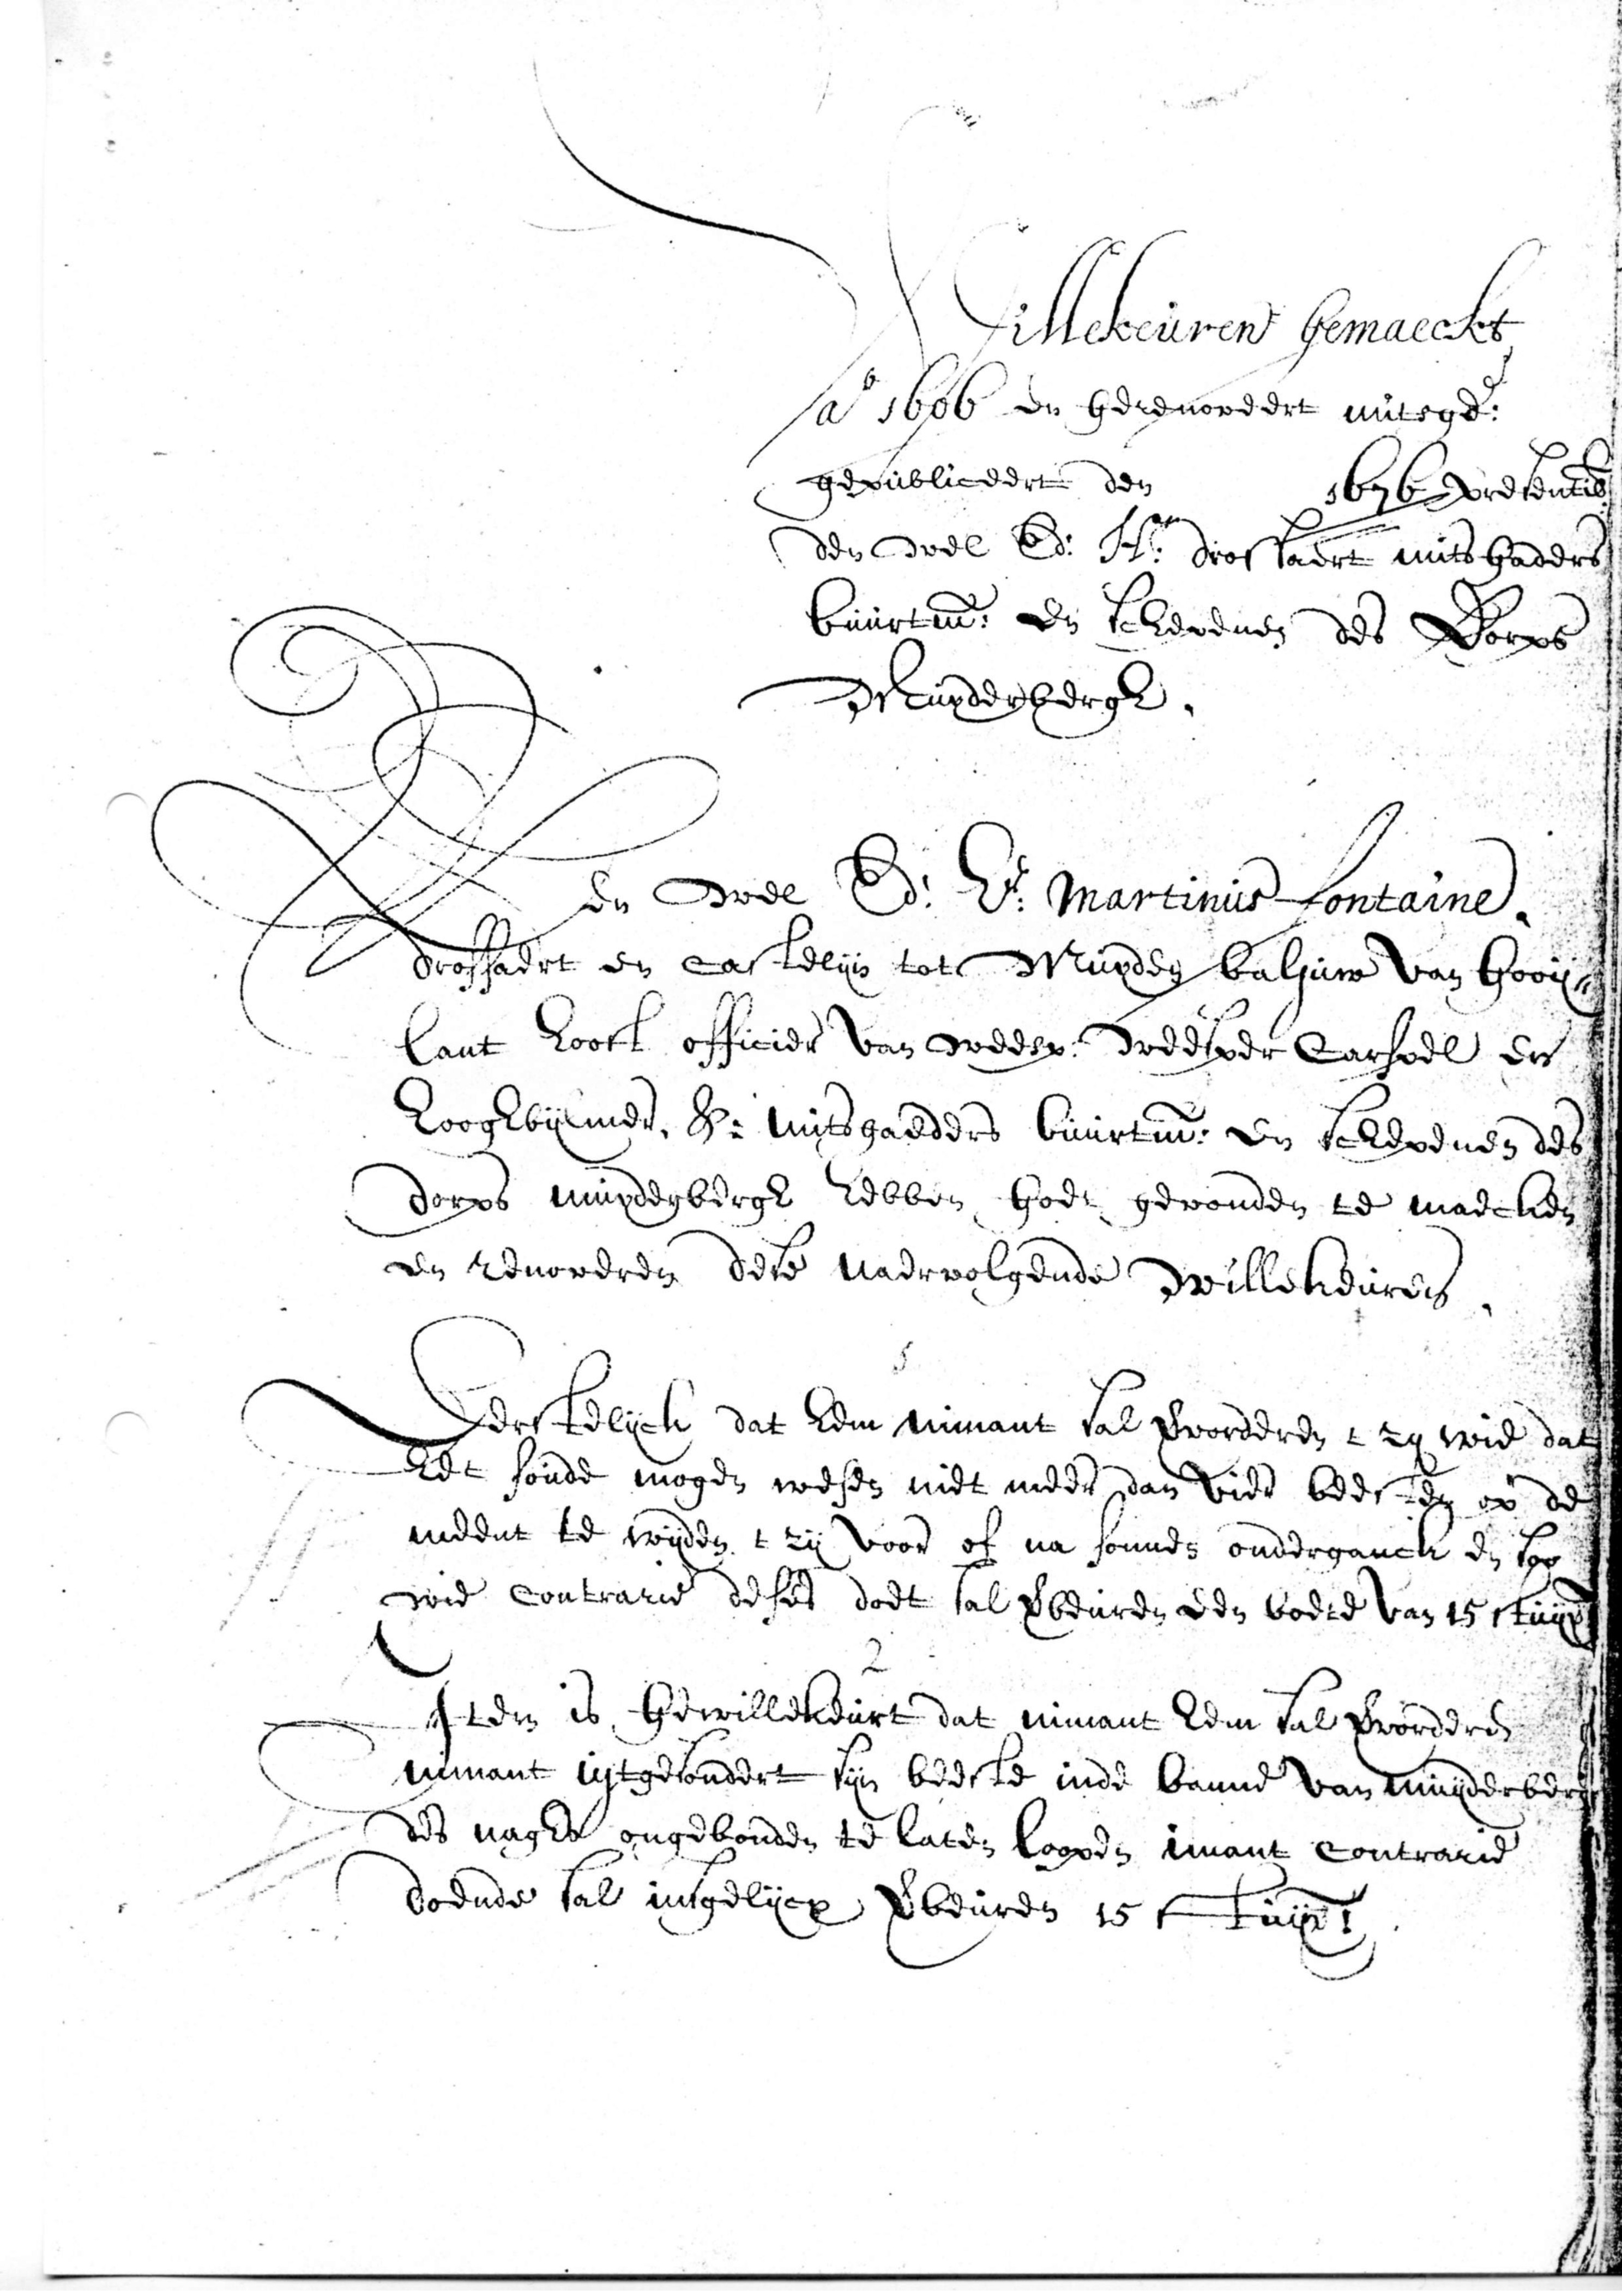 Willekeuren Gemaeckt
ao 1606 en Gerenoveert mitsgd:
gepubliceert den 1676 presentib
den wel Ed: Hr: drossaert mitsgaders
buurtmrs: en schepenen des Dorps
Muyderbergh.
Den wel Ed: Hr: Martinus Fontaine.
Drossaert en Castelijn tot Muyden bailjuw van Gooy=
lant Hooft officier van weesp: weesper Carspel en
hooghbijlmer, &: mitsgaeders buurtmrs: en schepenen des
Dorps muyderbergh hebben Goet gevonden te maecken
en renoveren dese naervolgende willekeuren.
1
Eerstelijck dat hem nimant sal vervorderen t zy wie dat
het soude mogen wesen niet meer dan vier beesten op de
meent te wyden t zij voor of na sonnes onderganck en soo
wie contrarie deses doet sal verbeuren een boete van 15 stuyv
2
Item is Gewillekeurt dat nimant hem sal vervorderen
nimant uytgesondert sijn beeste inde banne van muyderberg
des naghs ongebonden te laten loopen imant contrarie
doende sal insgelijcx verbeuren 15 stuyvr